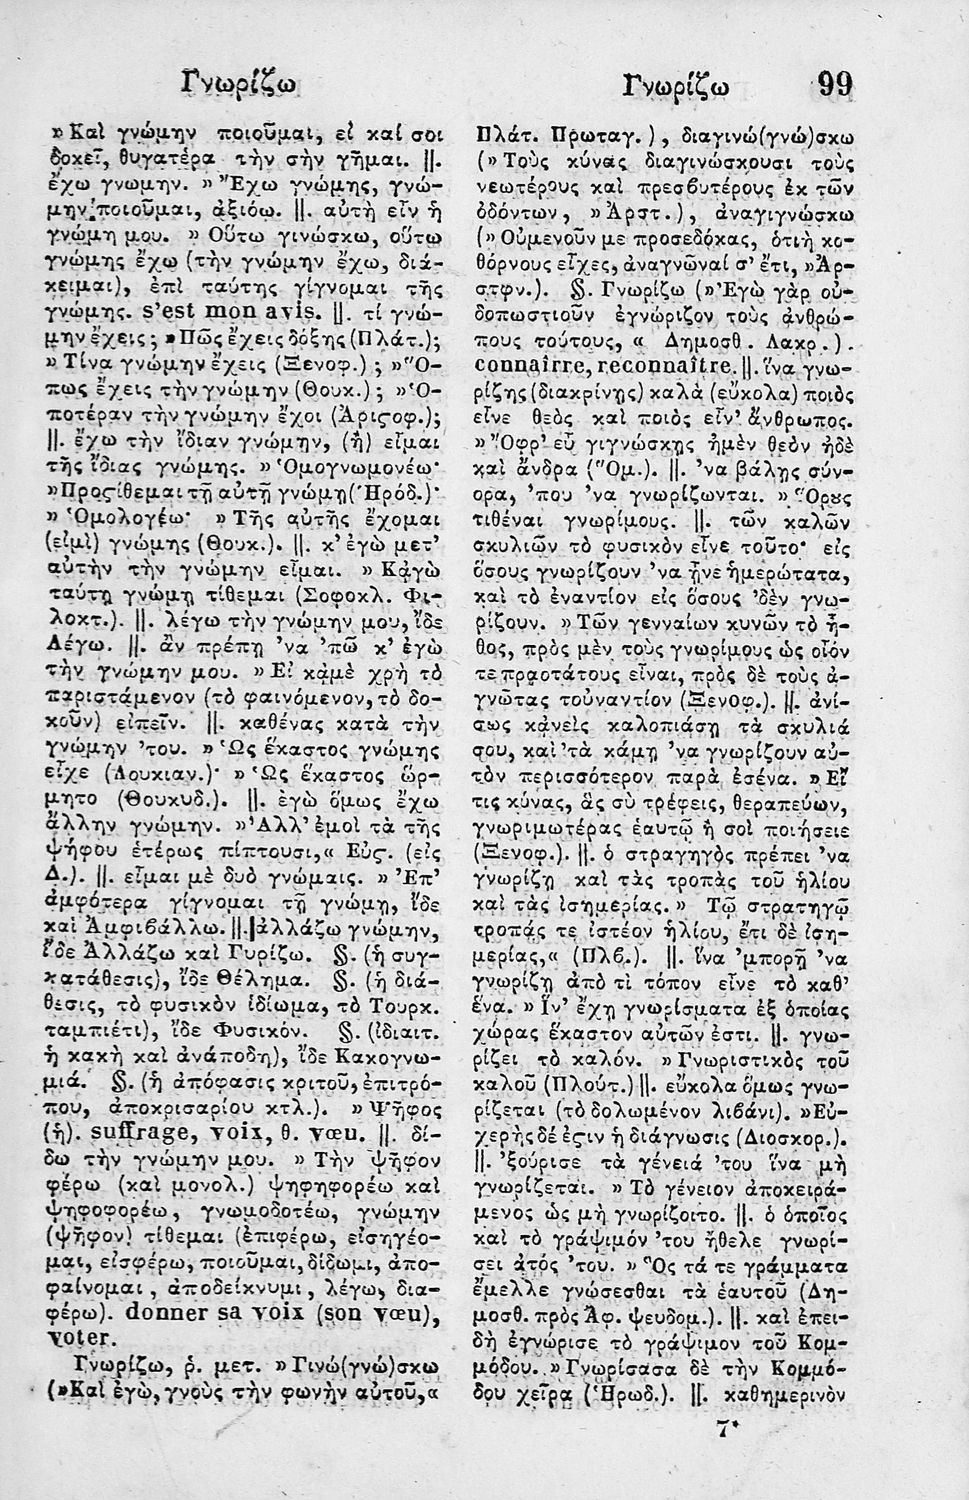 Γνωρίζω
Γνωρίζω 99
» Καὶ γνώμην ποιοῦμαι, εἰ καί σοι
δοκεῖ, θυγατέρα τὴν σὴν γῆμαι. ||.
ἔχω γνωμην. » Ἔχω γνώμης, γνώ-
μην ποιοῦμαι, ἀξιόω. ||. αὐτὴ εἶν ἡ
γνώμη μου. » Οὕτω γινώσκω, οὕτω
γνώμης ἔχω (τὴν γνώμην ἔχω, διά-
κειμαι), ἐπὶ ταύτης γίγνομαι τῆς
γνώμης. s'est mon avis. ||. τί γνώ-
μην ἔχεις ; » Πῶς ἔχεις δόξης (Πλάτ.);
» Τίνα γνώμην ἔχεις (Ξενοφ.) ; » Ὅ-
πως ἔχεις τὴν γνώμην (Θουκ.) ; » Ὁ-
ποτέραν τὴν γνώμην ἔχοι (Ἀριϛοφ.);
||. ἔχω τὴν ἴδιαν γνώμην, (ἢ) εἶμαι
τῆς ἴδιας γνώμης. » Ὁμογνωμονέω·
» Προϛίθεμαι τῇ αὐτῇ γνώμῃ (Ἡρόδ.)·
» Ὁμολογέω· » Τῆς αὐτῆς ἔχομαι
(εἰμὶ) γνώμης (Θουκ.). ||. κ' ἐγὼ μετ'
αὐτὴν τὴν γνώμην εἶμαι. » Κἀγὼ
ταύτῃ γνώμῃ τίθεμαι (Σοφοκλ. Φι-
λοκτ.). ||. λέγω τὴν γνώμην μου, ἴδε
Λέγω. ||. ἂν πρέπῃ 'να 'πῶ κ' ἐγὼ
τὴν γνώμην μου. » Εἰ κἀμὲ χρὴ τὸ
παριστάμενον (τὸ φαινόμενον, τὸ δο-
κοῦν) εἰπεῖν. ||. καθένας κατὰ τὴν
γνώμην 'του. » Ὡς ἕκαστος γνώμης
εἶχε (Λουκιαν.)· » Ὡς ἕκαστος ὥρ-
μητο (Θουκυδ.). ||. ἐγὼ ὅμως ἔχω
ἄλλην γνώμην. » Ἀλλ' ἐμοὶ τὰ τῆς
ψήφου ἑτέρως πίπτουσι,« Εὐϛ. (εἰς
Δ.). ||. εἶμαι μὲ δυὸ γνώμαις. » Ἐπ'
ἀμφότερα γίγνομαι τῇ γνώμῃ, ἴδε
καὶ Ἀμφιβάλλω. ||. ἀλλάζω γνώμην,
ἴδε Ἀλλάζω καὶ Γυρίζω. §. (ἡ συγ-
κατάθεσις), ἴδε Θέλημα. §. (ἡ διά-
θεσις, τὸ φυσικὸν ἰδίωμα, τὸ Τουρκ.
ταμπιέτι), ἴδε Φυσικόν. §. (ἰδιαιτ.
ἡ κακὴ καὶ ἀνάποδη), ἴδε Κακογνω-
μιά. §. (ἡ ἀπόφασις κριτοῦ, ἐπιτρό-
που, ἀποκρισαρίου κτλ.). » Ψῆφος
(ἡ). suffrage, voix, θ. vœu. ||. δί-
δω τὴν γνώμην μου. » Τὴν ψῆφον
φέρω (καὶ μονολ.) ψηφηφορέω καὶ
ψηφοφορέω, γνωμοδοτέω, γνώμην
(ψῆφον) τίθεμαι (ἐπιφέρω, εἰσηγέο-
μαι, εἰσφέρω, ποιοῦμαι, δίδωμι, ἀπο-
φαίνομαι, ἀποδείκνυμι, λέγω, δια-
φέρω). donner sa voix (son vœu),
voter.
Γνωρίζω, ῥ. μετ. » Γινώ(γνώ)σκω
(» Καὶ ἐγὼ, γνοὺς τὴν φωνὴν αὐτοῦ,«
Πλάτ. Πρωταγ.), διαγινώ(γνώ)σκω
(» Τοὺς κύνας διαγινώσκουσι τοὺς
νεωτέρους καὶ πρεσβυτέρους ἐκ τῶν
ὀδόντων, » Ἀρστ.), ἀναγιγνώσκω
(» Οὐμενοῦν με προσεδόκας, ὁτιὴ κο-
θόρνους εἶχες, ἀναγνῶναί σ' ἔτι, » Ἀρ-
στφν.). §. Γνωρίζω (» Ἐγὼ γὰρ οὐ-
δοπωστιοῦν ἐγνώριζον τοὺς ἀνθρώ-
πους τούτους, « Δημοσθ. Λακρ.).
connaîrre, reconnaître. ||. ἵνα γνω-
ρίζῃς (διακρίνῃς) καλὰ (εὔκολα) ποιὸς
εἶνε θεὸς καὶ ποιὸς εἶν' ἄνθρωπος.
» Ὄφρ' εὖ γιγνώσκῃς ἠμὲν θεὸν ἠδὲ
καὶ ἄνδρα (Ὅμ.). ||. 'να βάλῃς σύν-
ορα, 'που 'να γνωρίζωνται. » Ὅρȣς
τιθέναι γνωρίμους. ||. τῶν καλῶν
σκυλιῶν τὸ φυσικὸν εἶνε τοῦτο· εἰς
ὅσους γνωρίζουν 'να ᾖνε ἡμερώτατα,
καὶ τὸ ἐναντίον εἰς ὅσους 'δὲν γνω-
ρίζουν. » Τῶν γενναίων κυνῶν τὸ ἦ-
θος, πρὸς μὲν τοὺς γνωρίμους ὡς οἷόν
τε πραοτάτους εἶναι, πρὸς δὲ τοὺς ἀ-
γνῶτας τοὐναντίον (Ξενοφ.). ||. ἀνί-
σως κἀνεὶς καλοπιάσῃ τὰ σκυλιά
σου, καὶ 'τὰ κάμῃ 'να γνωρίζουν αὐ-
τὸν περισσότερον παρὰ ἐσένα. » Εἴ
τις κύνας, ἃς σὺ τρέφεις, θεραπεύων,
γνωριμωτέρας ἑαυτῷ ἢ σοὶ ποιήσειε
(Ξενοφ.). ||. ὁ στρατηγὸς πρέπει 'να
γνωρίζῃ καὶ τὰς τροπὰς τοῦ ἡλίου
καὶ τὰς ἰσημερίας.» Τῷ στρατηγῷ
τροπάς τε ἰστέον ἡλίου, ἔτι δὲ ἰση-
μερίας,« (Πλβ.). ||. ἵνα 'μπορῇ 'να
γνωρίζῃ ἀπὸ τί τόπον εἶνε τὸ καθ'
ἕνα. » Ἵν' ἔχῃ γνωρίσματα ἐξ ὁποίας
χώρας ἕκαστον αὐτῶν ἐστι. ||. γνω-
ρίζει τὸ καλόν. » Γνωριστικὸς τοῦ
καλοῦ (Πλούτ.) ||. εὔκολα ὅμως γνω-
ρίζεται (τὸ δολωμένον λιβάνι). » Εὐ-
χερὴς δέ ἐϛιν ἡ διάγνωσις (Διοσκορ.).
||. 'ξούρισε τὰ γένειά 'του ἵνα μὴ
γνωρίζεται. » Τὸ γένειον ἀποκειρά-
μενος ὡς μὴ γνωρίζοιτο. ||. ὁ ὁποῖος
καὶ τὸ γράψιμόν 'του ἤθελε γνωρί-
σει ἀτός 'του. » Ὅς τά τε γράμματα
ἔμελλε γνώσεσθαι τὰ ἑαυτοῦ (Δη-
μοσθ. πρὸς Ἄφ. ψευδομ.). ||. καὶ ἐπει-
δὴ ἐγνώρισε τὸ γράψιμον τοῦ Κομ-
μόδου. » Γνωρίσασα δὲ τὴν Κομμό-
δου χεῖρα (Ἡρωδ.). ||. καθημερινὸν
7*